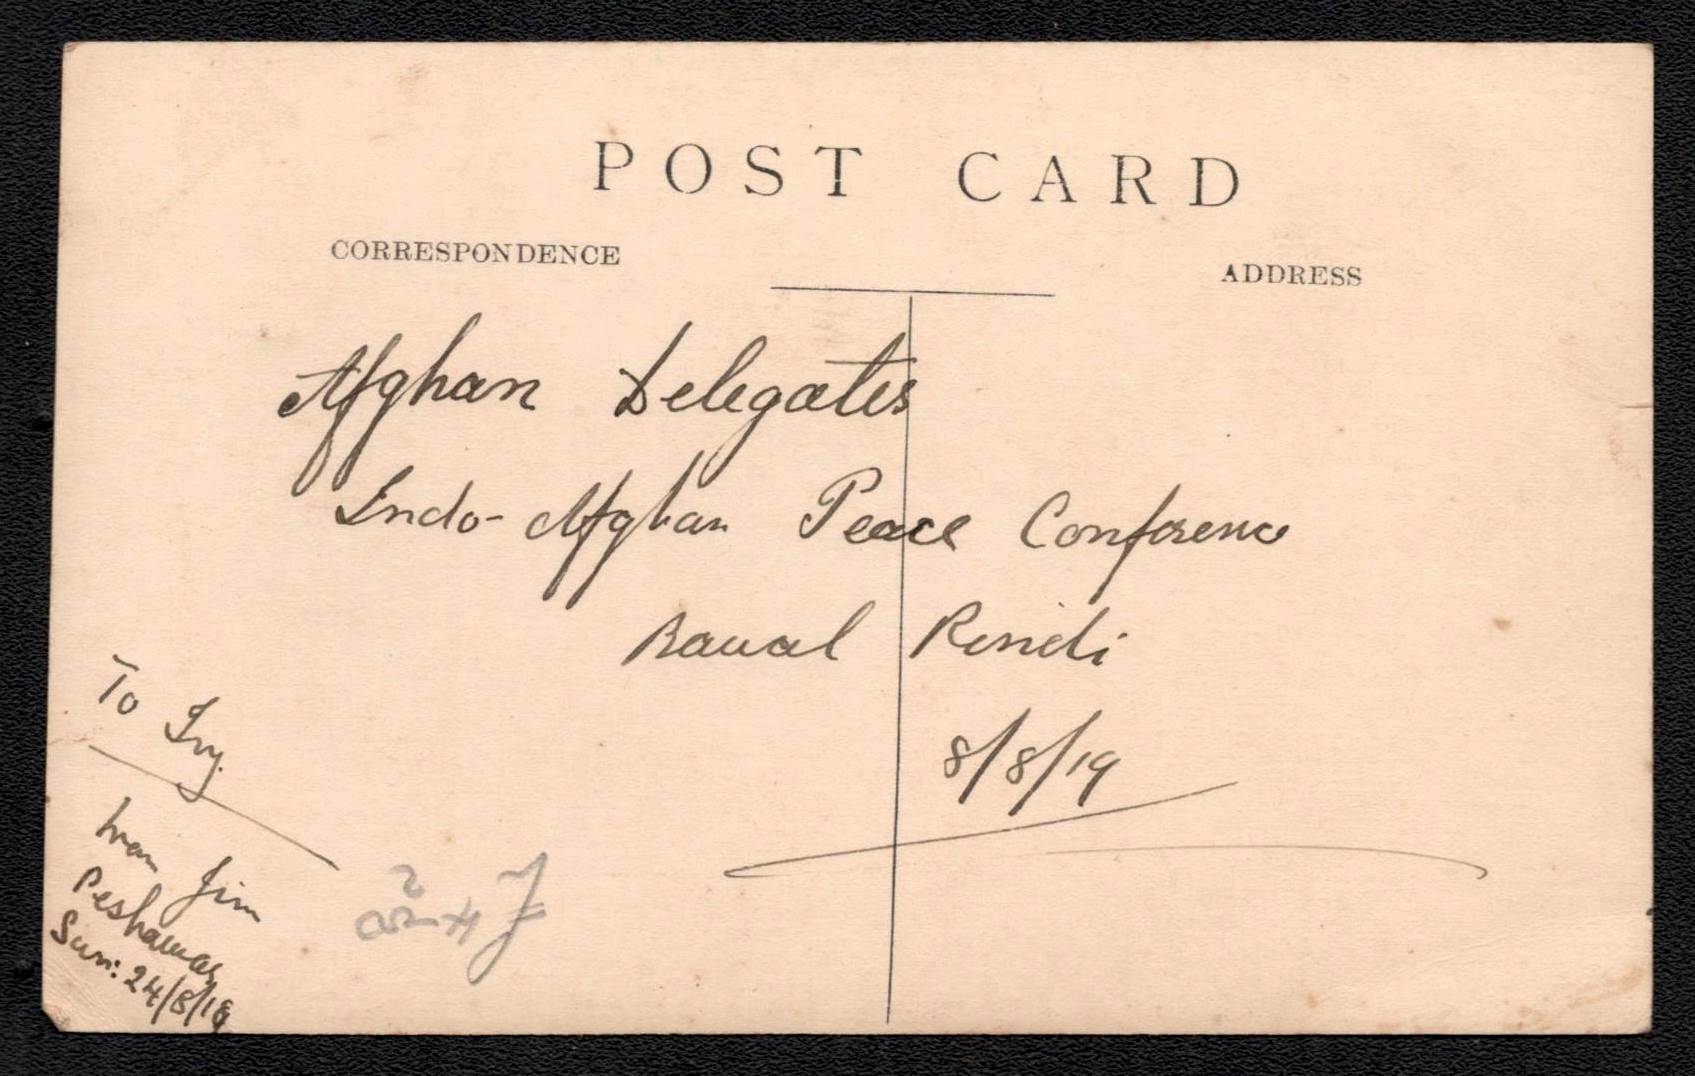 POST CARD
CORRESPONDENCE
ADDRESS
Afghan Delegates
Indo-Afghan Peace Conference
Rawal Pindi
8/8/19
To Ivy.
from Jim
Peshawar
Sun: 24/8/19